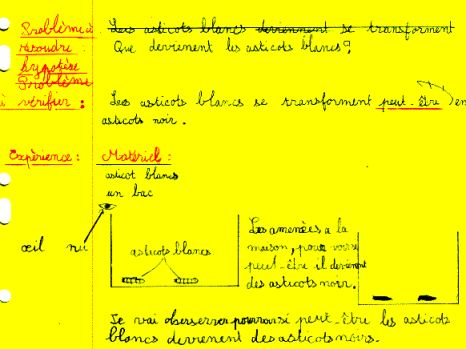 Problème à Les asticots blancs deviennent se transforment
résoudre : Que devienent les asticots blancs?
hypotèse
Problème
à vérifier : Les asticots blancs se transforment peut-être en
asticots noir.
Expérience : Matériel :
asticot blancs
un bac
œil nu
asticots blancs
Les amenées a la
maison, pour voir si
peut-être il devienent
des asticots noir.
Je vai oberserver pour voir si peut-être les asticots
blancs devienent des asticots noirs.